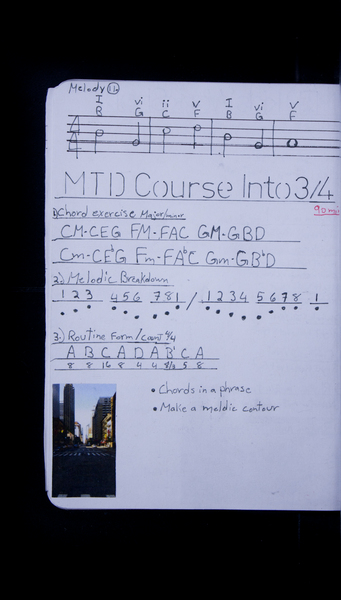 Melody
I vi ii V I vi V
B G C F B G F
MTD Course Into 3/4
90 min
1) Chord exercise Major/minor
CM-CEG FM-FAC GM-GBD
Cm-CE♭G Fm-FA♭C Gm-GB♭D
2.) Melodic Breakdown
1 2 3 4 5 6 7 8 1 / 1 2 3 4 5 6 7 8 1
3.) Routine Form/count 4/4
A B C A D A B' C A
8 8 16 8 4 4 8/2 5 8
• Chords in a phrase
• Make a meldic contour